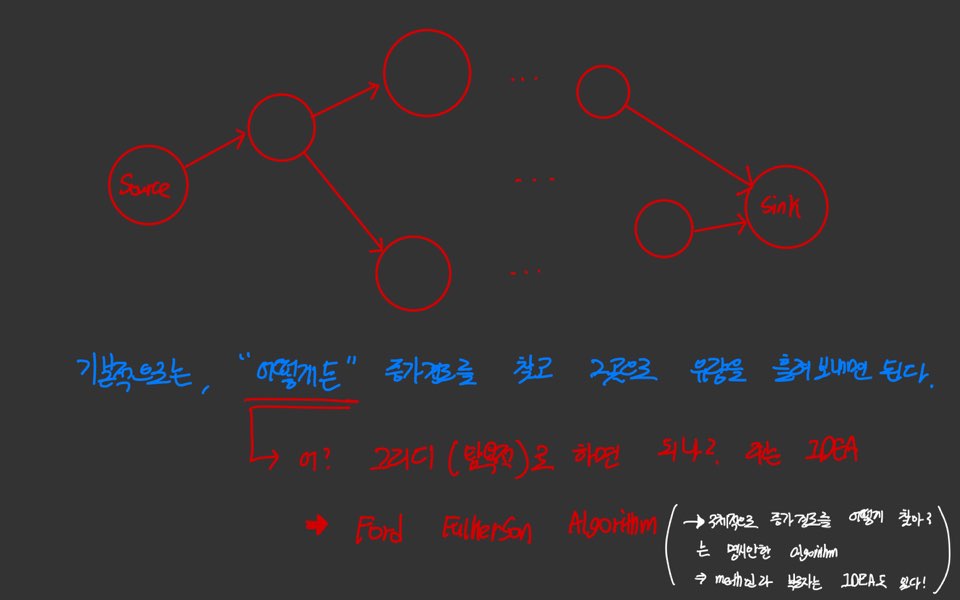 Source
Sink
기본적으로는, "어떻게든" 증가경로를 찾고 그곳으로 유량을 흘려보내면 된다.
어? 그리디(탐욕적)로 하면 되나? 라는 IDEA
Ford Fulkerson Algorithm
구체적으로 증가경로를 어떻게 찾아?
는 명시안한 algorithm
⇒ method라 부르자는 IDEA도 있다!